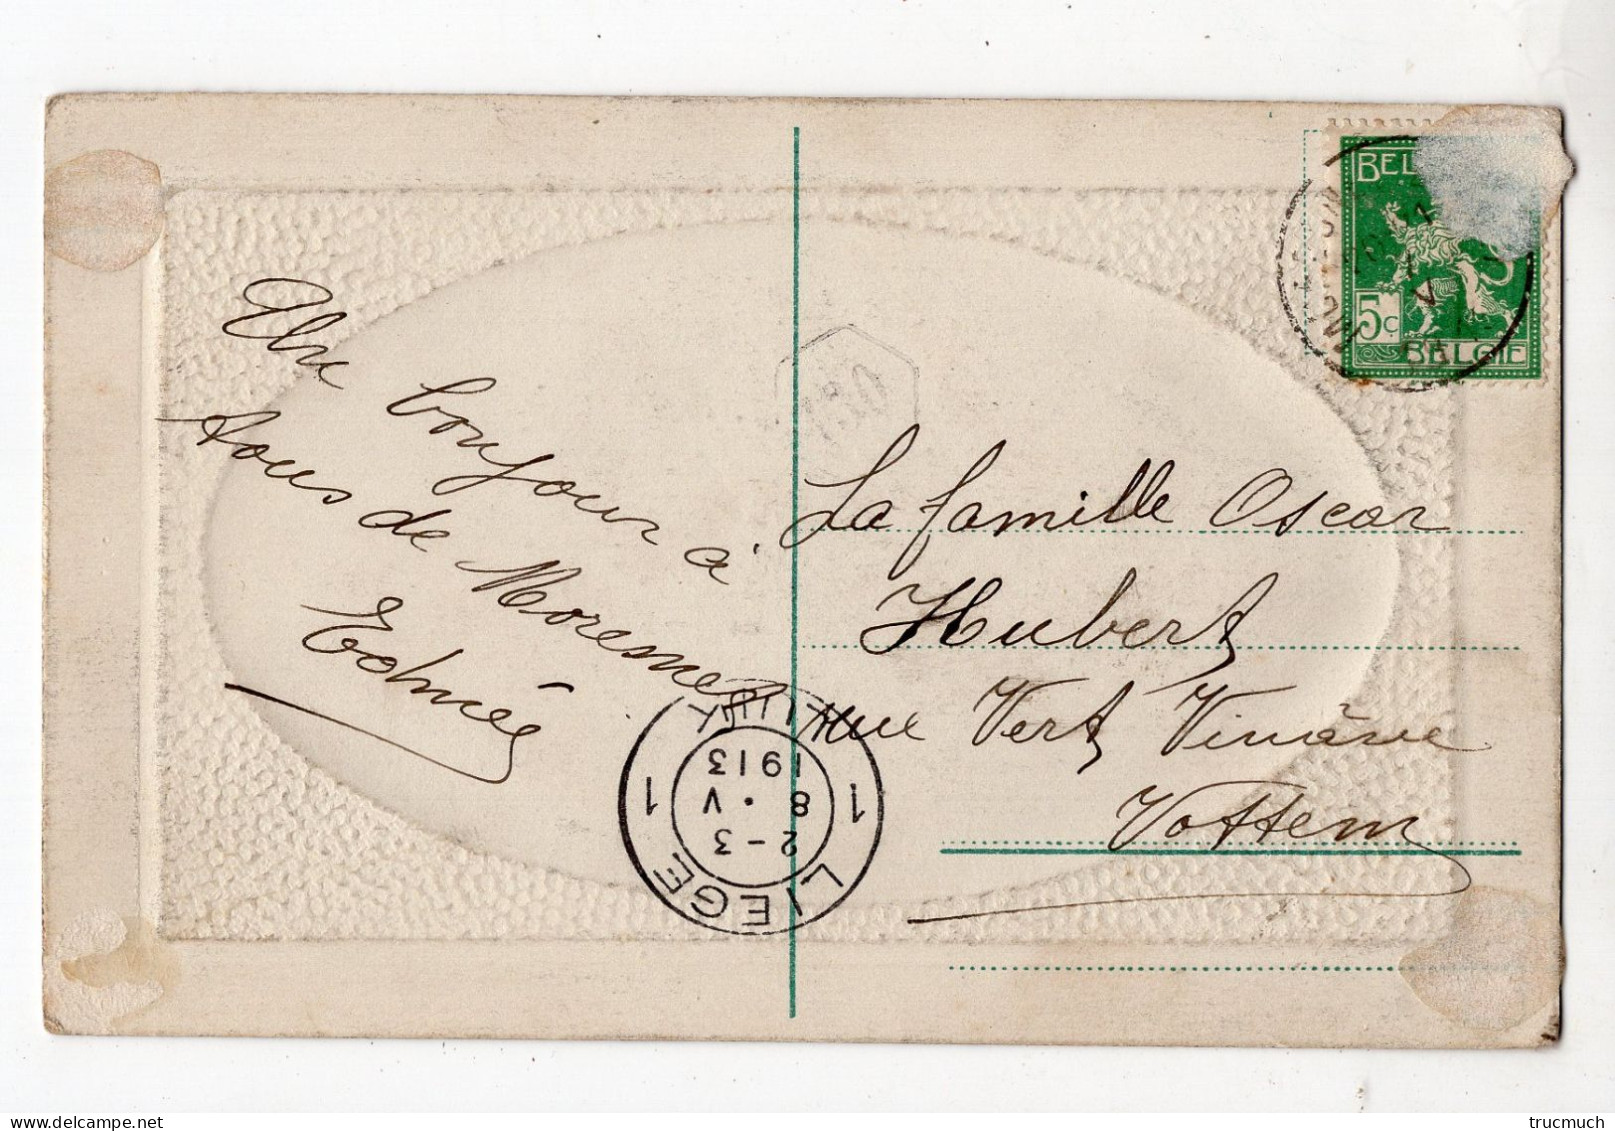 Un bonjour à
tous de Moresnet
Edmée
La famille Oscar
Hubert
rue Vert Vinâve
Vottem
BEL
5c
BELGIE
LIEGE 1 LUIK 1
2-3
8 • V
1913
trucmuch